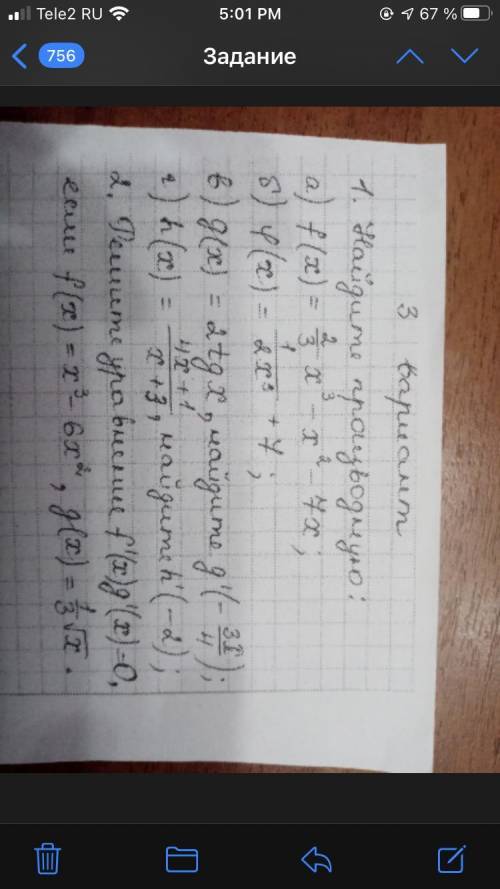 Tele2 RU 5:01 PM 67 %
756 Задание
3 вариант
1. Найдите производную:
а) f(x) = 2/3 x³ - x² - 7x;
б) φ(x) = 1/2x³ + 7;
в) g(x) = 2tg x, найдите g'(-3π/4);
г) h(x) = 4x+1/x+3, найдите h'(-2);
2. Решите уравнение f'(x)g'(x)=0,
если f(x) = x³ - 6x², g(x) = 1/3 √x.